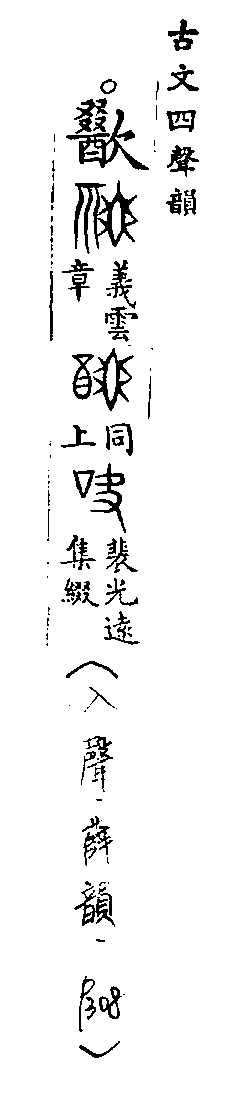 古文四聲韻
○歠 義雲章 同上 吷 裴光遠集綴（入聲-薛韻-P308）